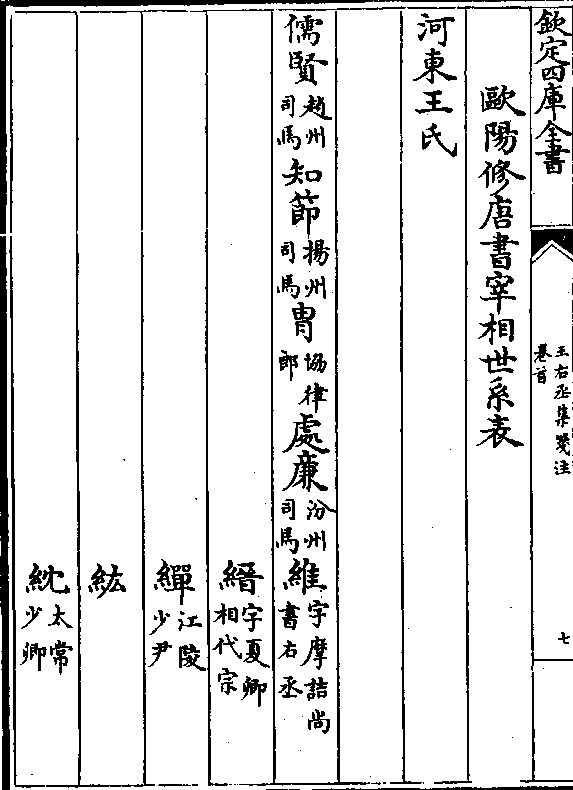 欽定四庫全書
王右丞集箋注
卷首
七
歐陽修唐書宰相世系表
河東王氏
儒賢趙州司馬知節揚州司馬胄協律郎處廉汾州司馬維字摩詰尚書右丞
縉字夏卿相代宗
繟江陵少尹
紘
紞太常少卿